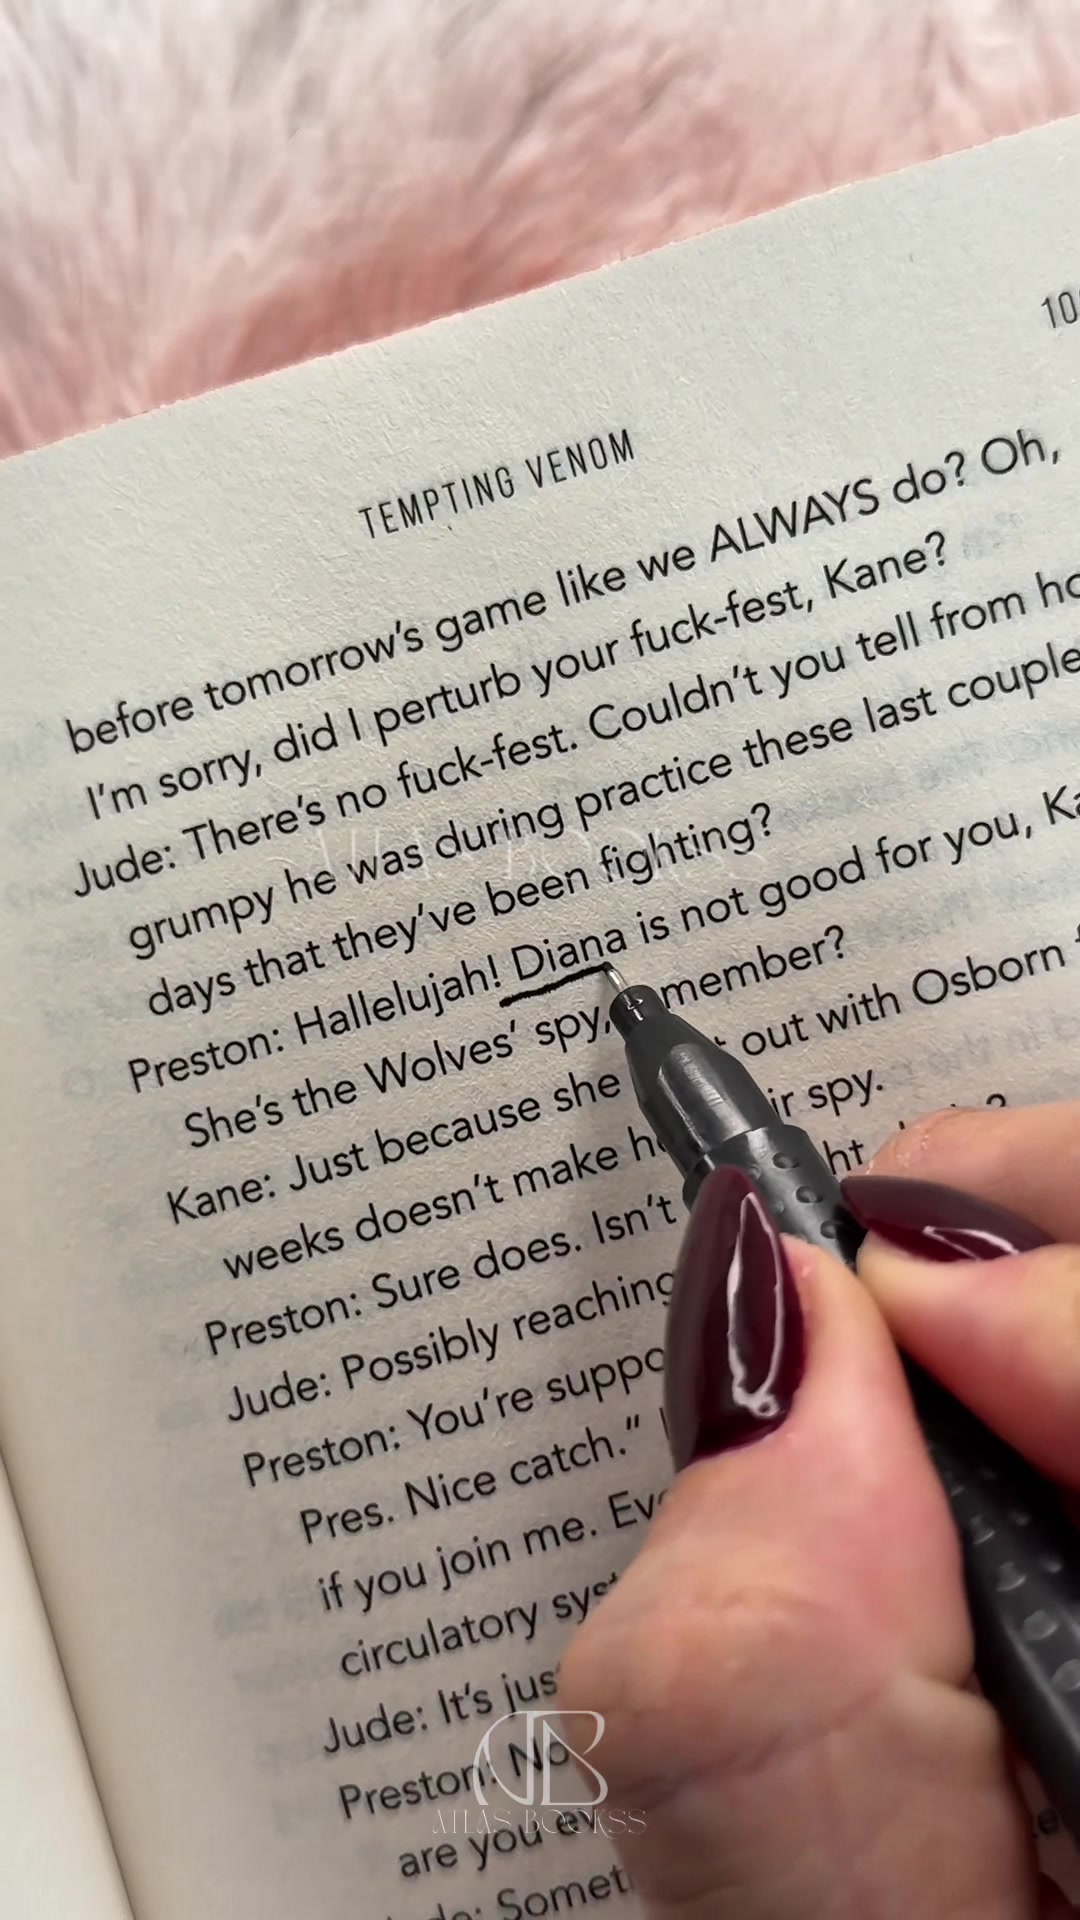 10
TEMPTING VENOM
before tomorrow's game like we ALWAYS do? Oh,
I'm sorry, did I perturb your fuck-fest, Kane?
Jude: There's no fuck-fest. Couldn't you tell from
grumpy he was during practice these last couple
days that they've been fighting?
Preston: Hallelujah! Diana is not good for you,
She's the Wolves' spy,
Kane: Just because she out with Osborn
weeks doesn't make spy.
Preston: Sure does. Isn't
Jude: Possibly reaching
Preston: You're
Pres. Nice catch."
if you join me.
circulatory
Jude: It's
Preston: No
are you
Jude:
ATLAS BOOKSS